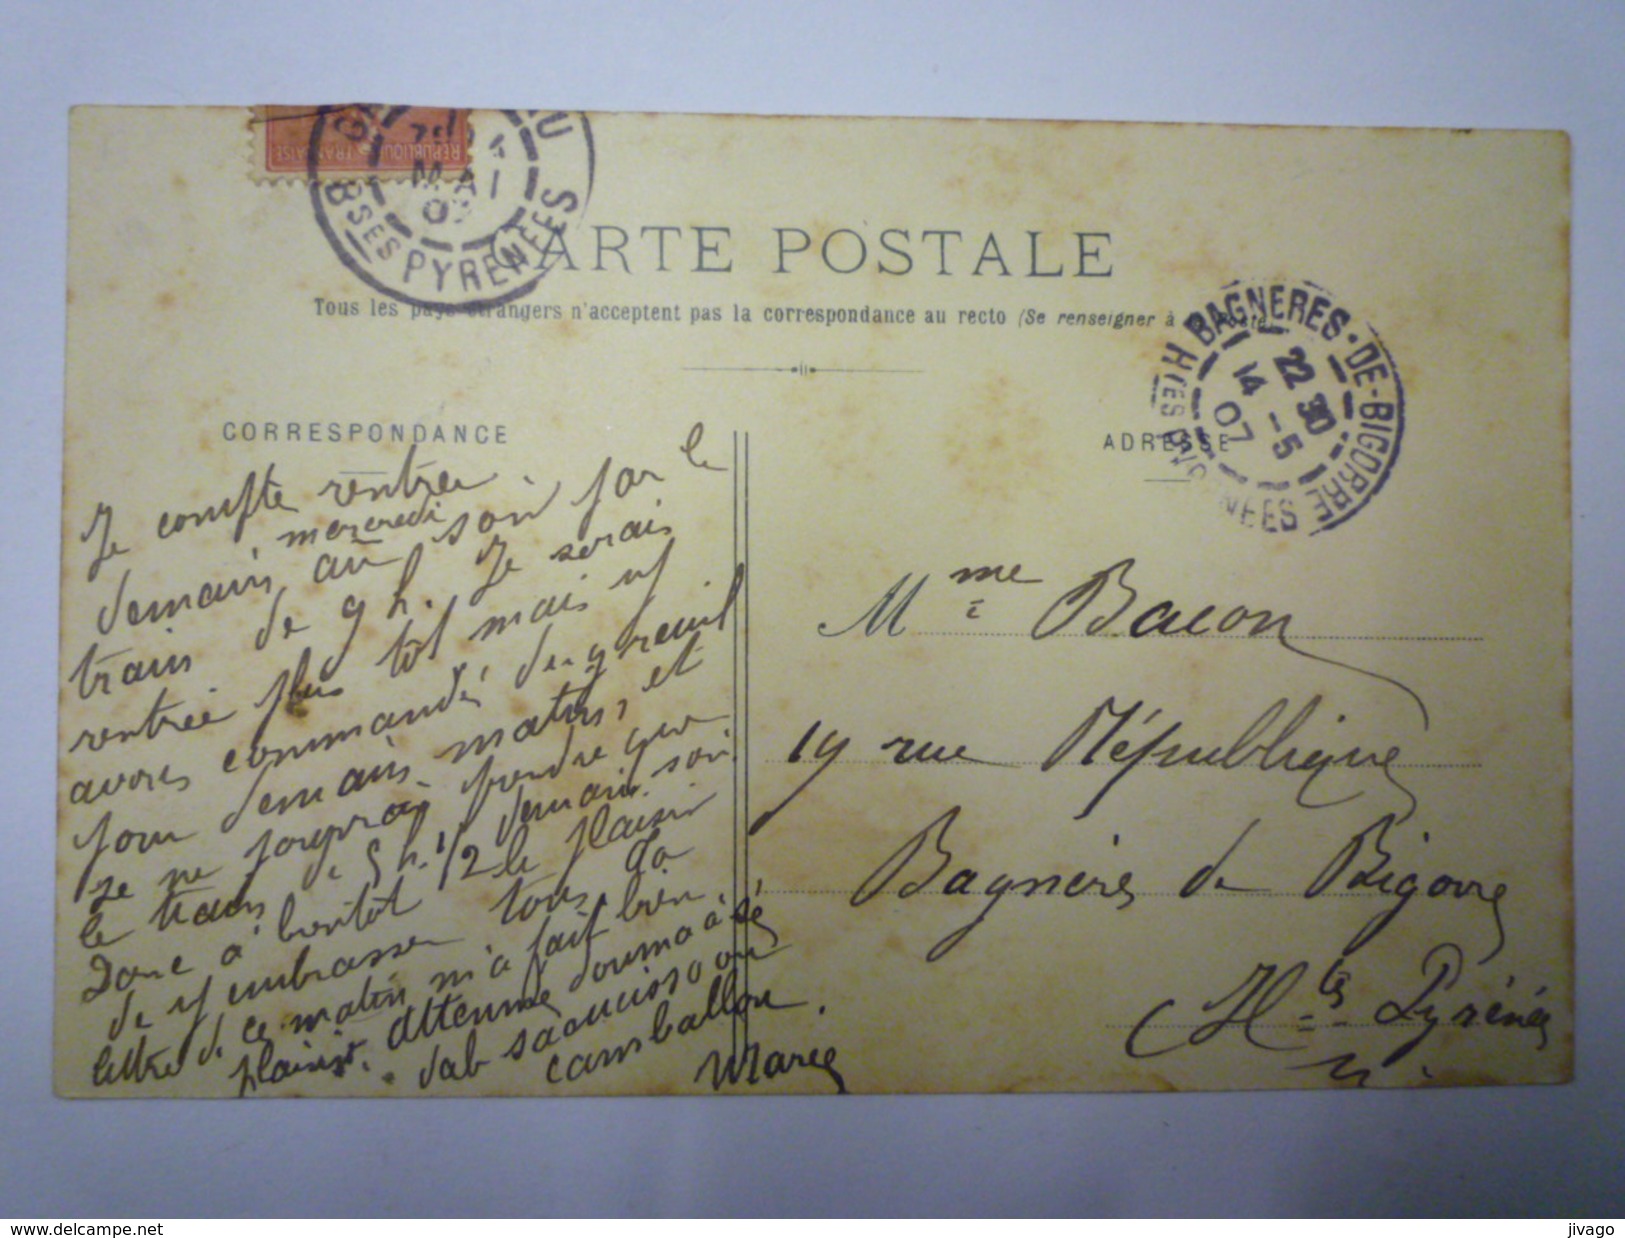 RÉPUBLIQUE FRANÇAISE
MAI
07
Bses PYRENEES
CARTE POSTALE
Tous les pays étrangers n'acceptent pas la correspondance au recto (Se renseigner à la Poste)
BAGNERES-DE-BIGORRE
22 30
14 -5
07
Htes PYRENEES
CORRESPONDANCE
Je compte rentrée
demain mercredi au soir par le
train de 9 h. Je serais
rentrée plus tôt mais
avons commandés de
pour demain matin, et
je ne pourrai prendre que
le train de 5 h. 1/2 demain soir.
Donc à bientôt le plaisir
de embrasser tous. La
lettre de ce matin m'a fait bien
plaisir.
Marie
ADRESSE
Mme Bacon
19 rue République
Bagnères de Bigorre
(Htes Pyrénées
delcampe.net
jivago